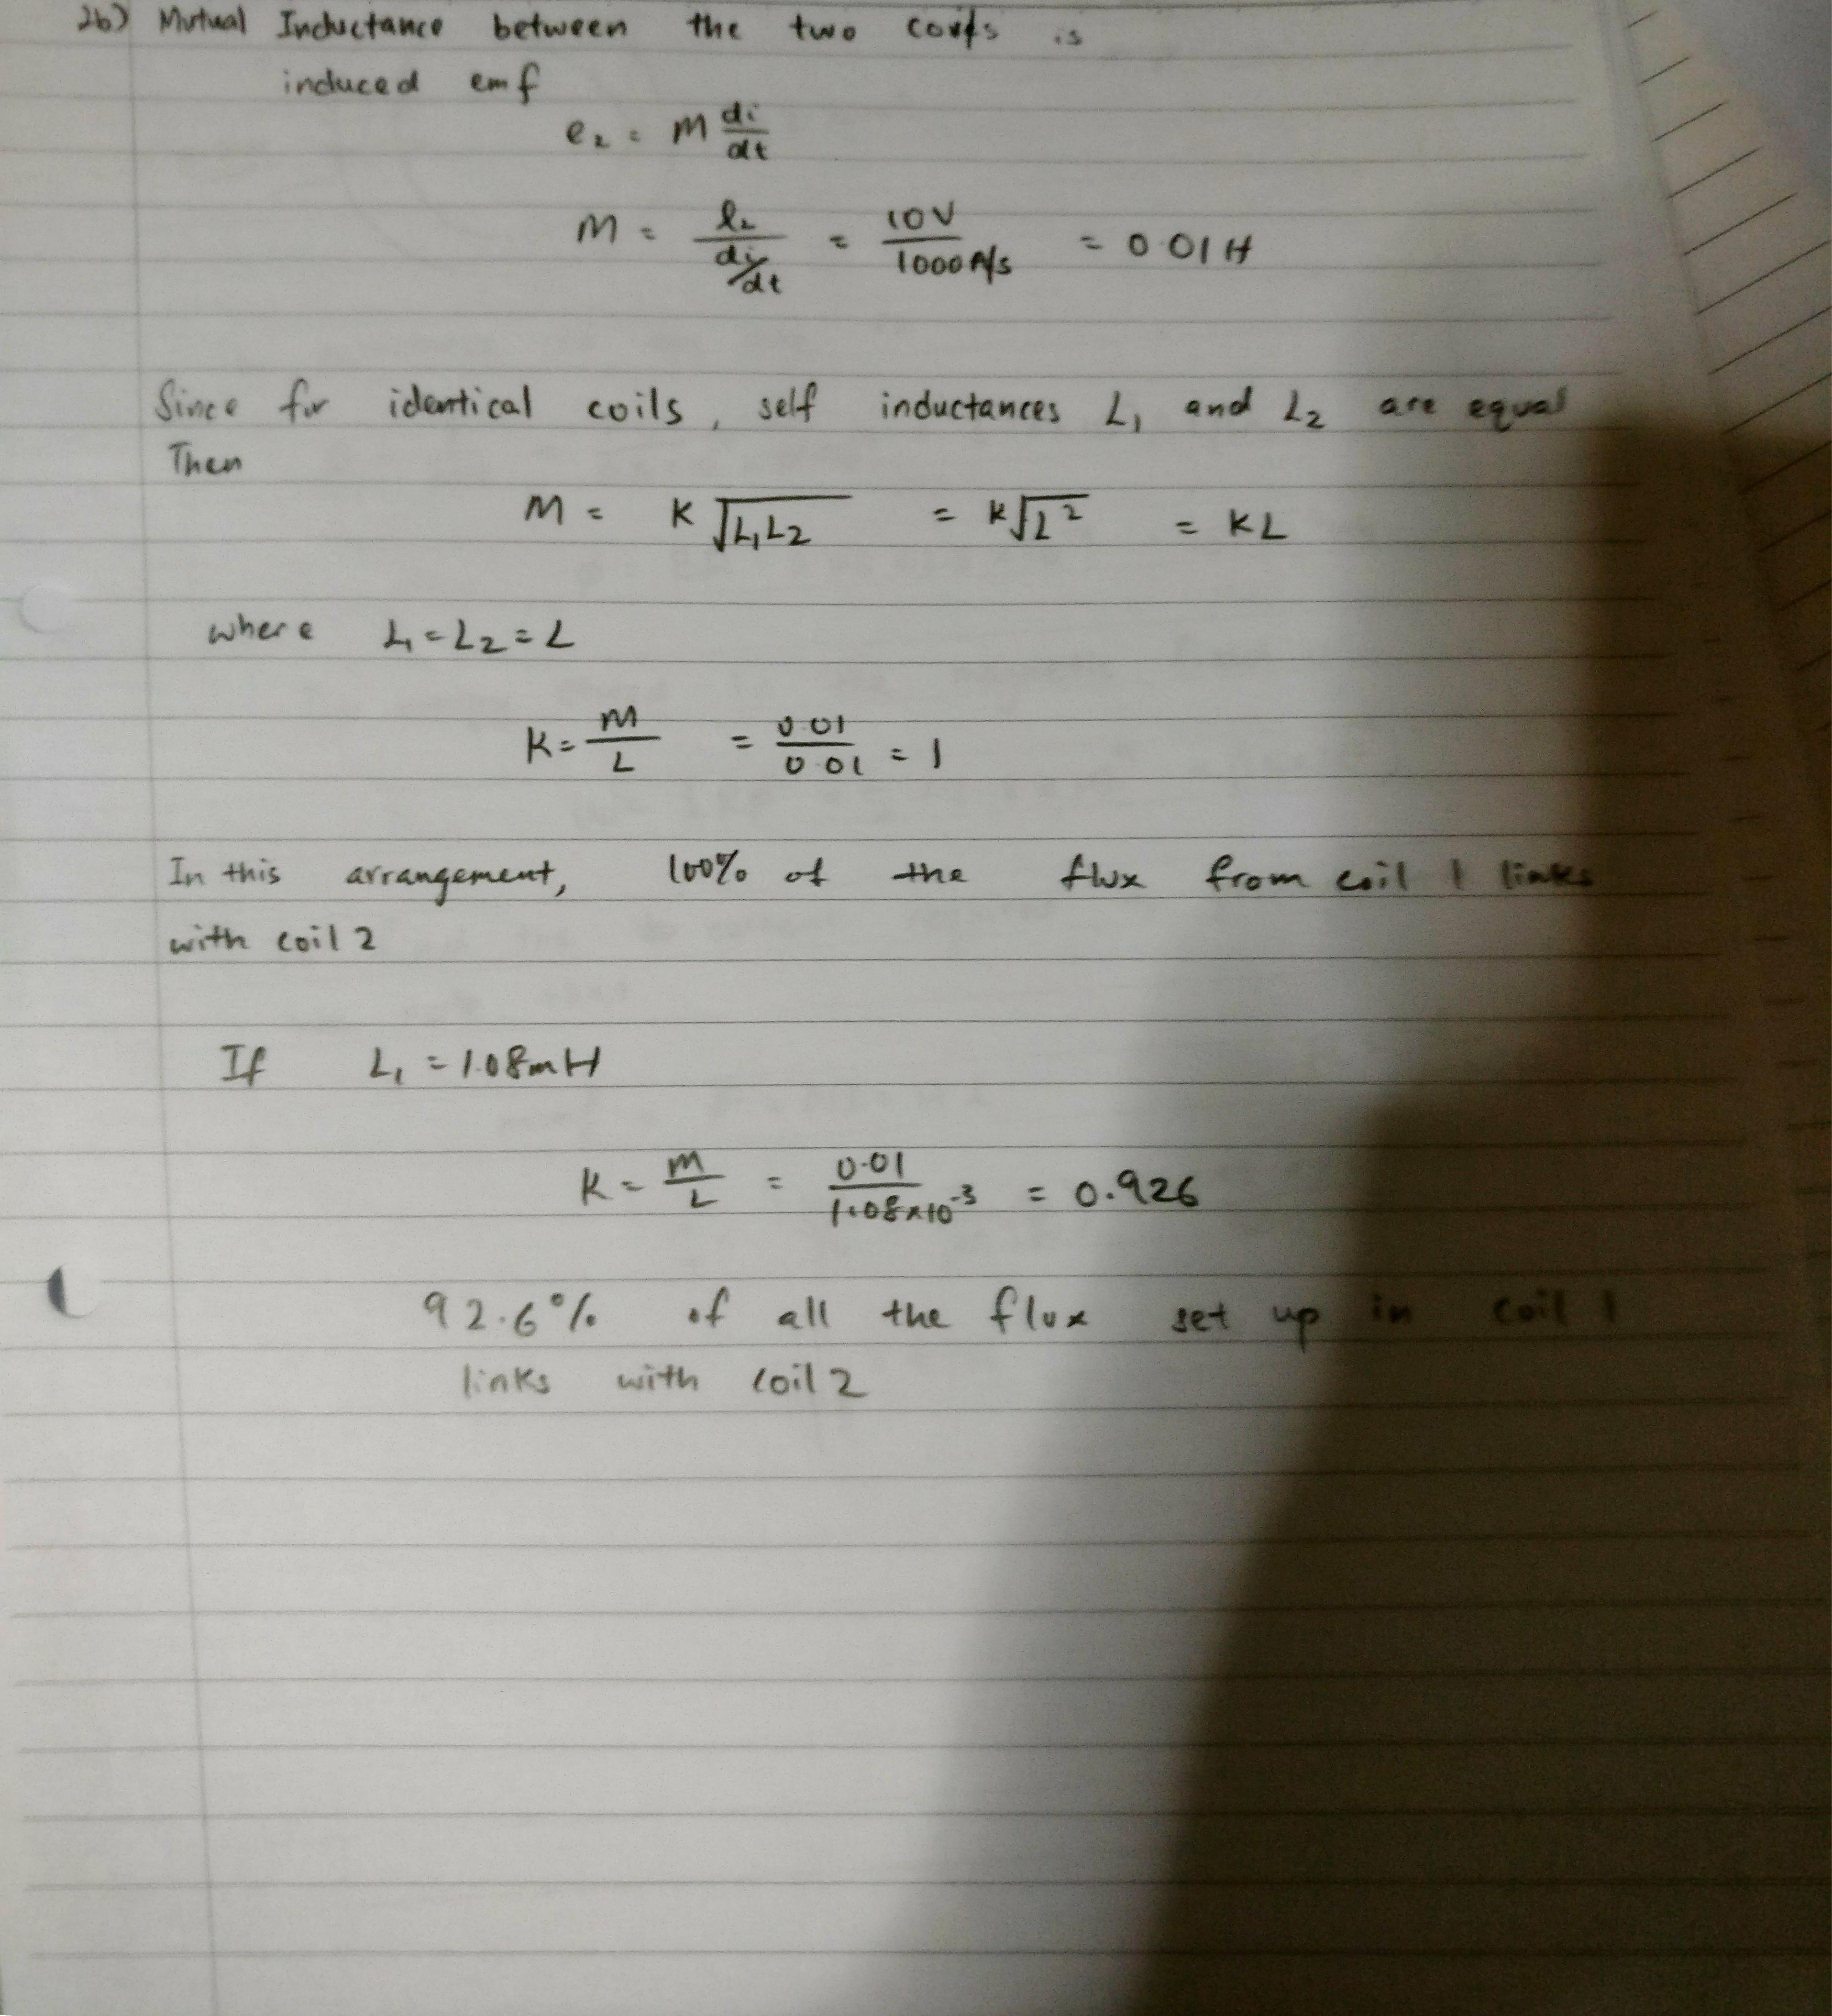 2b) Mutual Inductance between the two coils is
induced emf
e₂ = M di/dt
M = e₂/(di/dt) = 10V/1000A/s = 0.01H
Since for identical coils, self inductances L₁ and L₂ are equal
Then
M = K √L₁L₂ = K√L² = KL
where L₁ = L₂ = L
K = M/L = 0.01/0.01 = 1
In this arrangement, 100% of the flux from coil 1 links
with coil 2
If L₁ = 1.08mH
K = M/L = 0.01/1.08×10⁻³ = 0.926
92.6% of all the flux set up in coil 1
links with coil 2